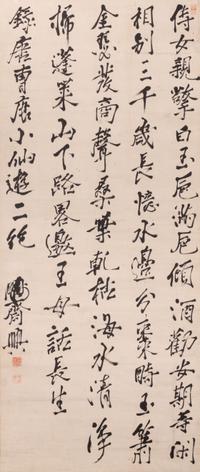 侍女親擎白玉卮滿卮傾酒勸安期等閑
相別三千歲長憶水邊分棗時玉簫
金瑟發商聲桑葉乾枯海水清淨
掃蓬萊山下路略邀王母話長生
錄唐曹唐小仙遊二絕 鵬齋興